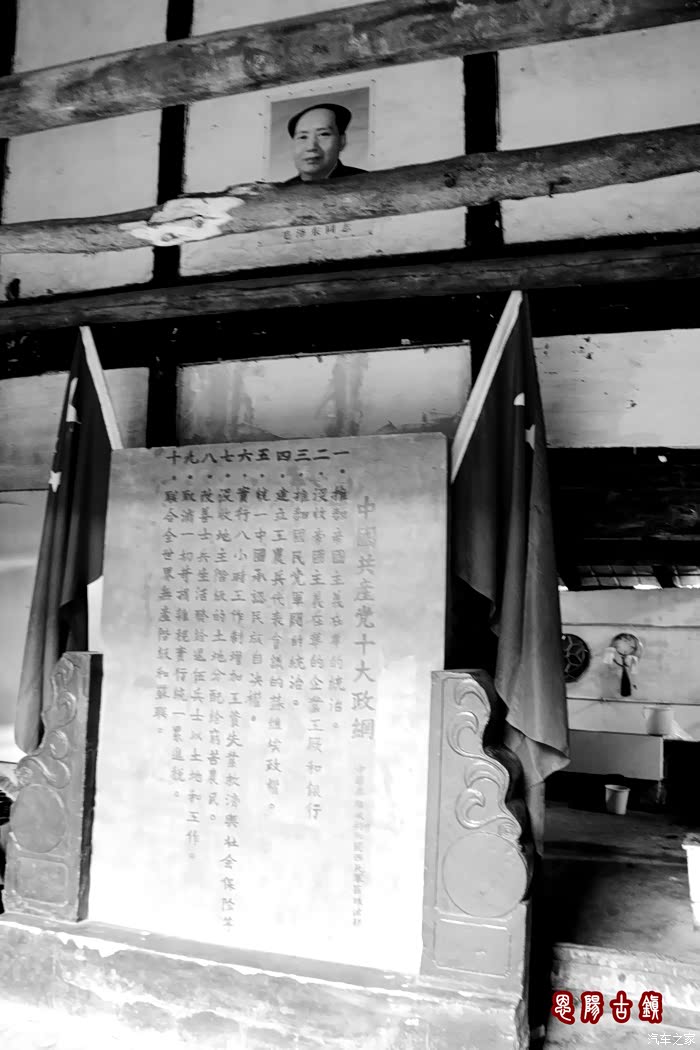 毛澤東同志
中國共產党十大政綱
一・推翻帝國主義在華的統治。
二・沒收帝國主義在華的企業工廠和銀行
三・推翻國民党軍閥的統治。
四・建立工農兵代表會議的蘇維埃政權。
五・統一中國承認民族自决權。
六・實行八小時工作制增加工資失業救濟與社會保險等
七・沒收地主階級的土地分配給窮苦農民。
八・改善士兵生活發給退伍兵士以土地和工作。
九・取消一切苛捐雜稅實行統一累進稅。
十・聯合全世界無產階級和蘇聯。
恩陽古鎮
汽车之家